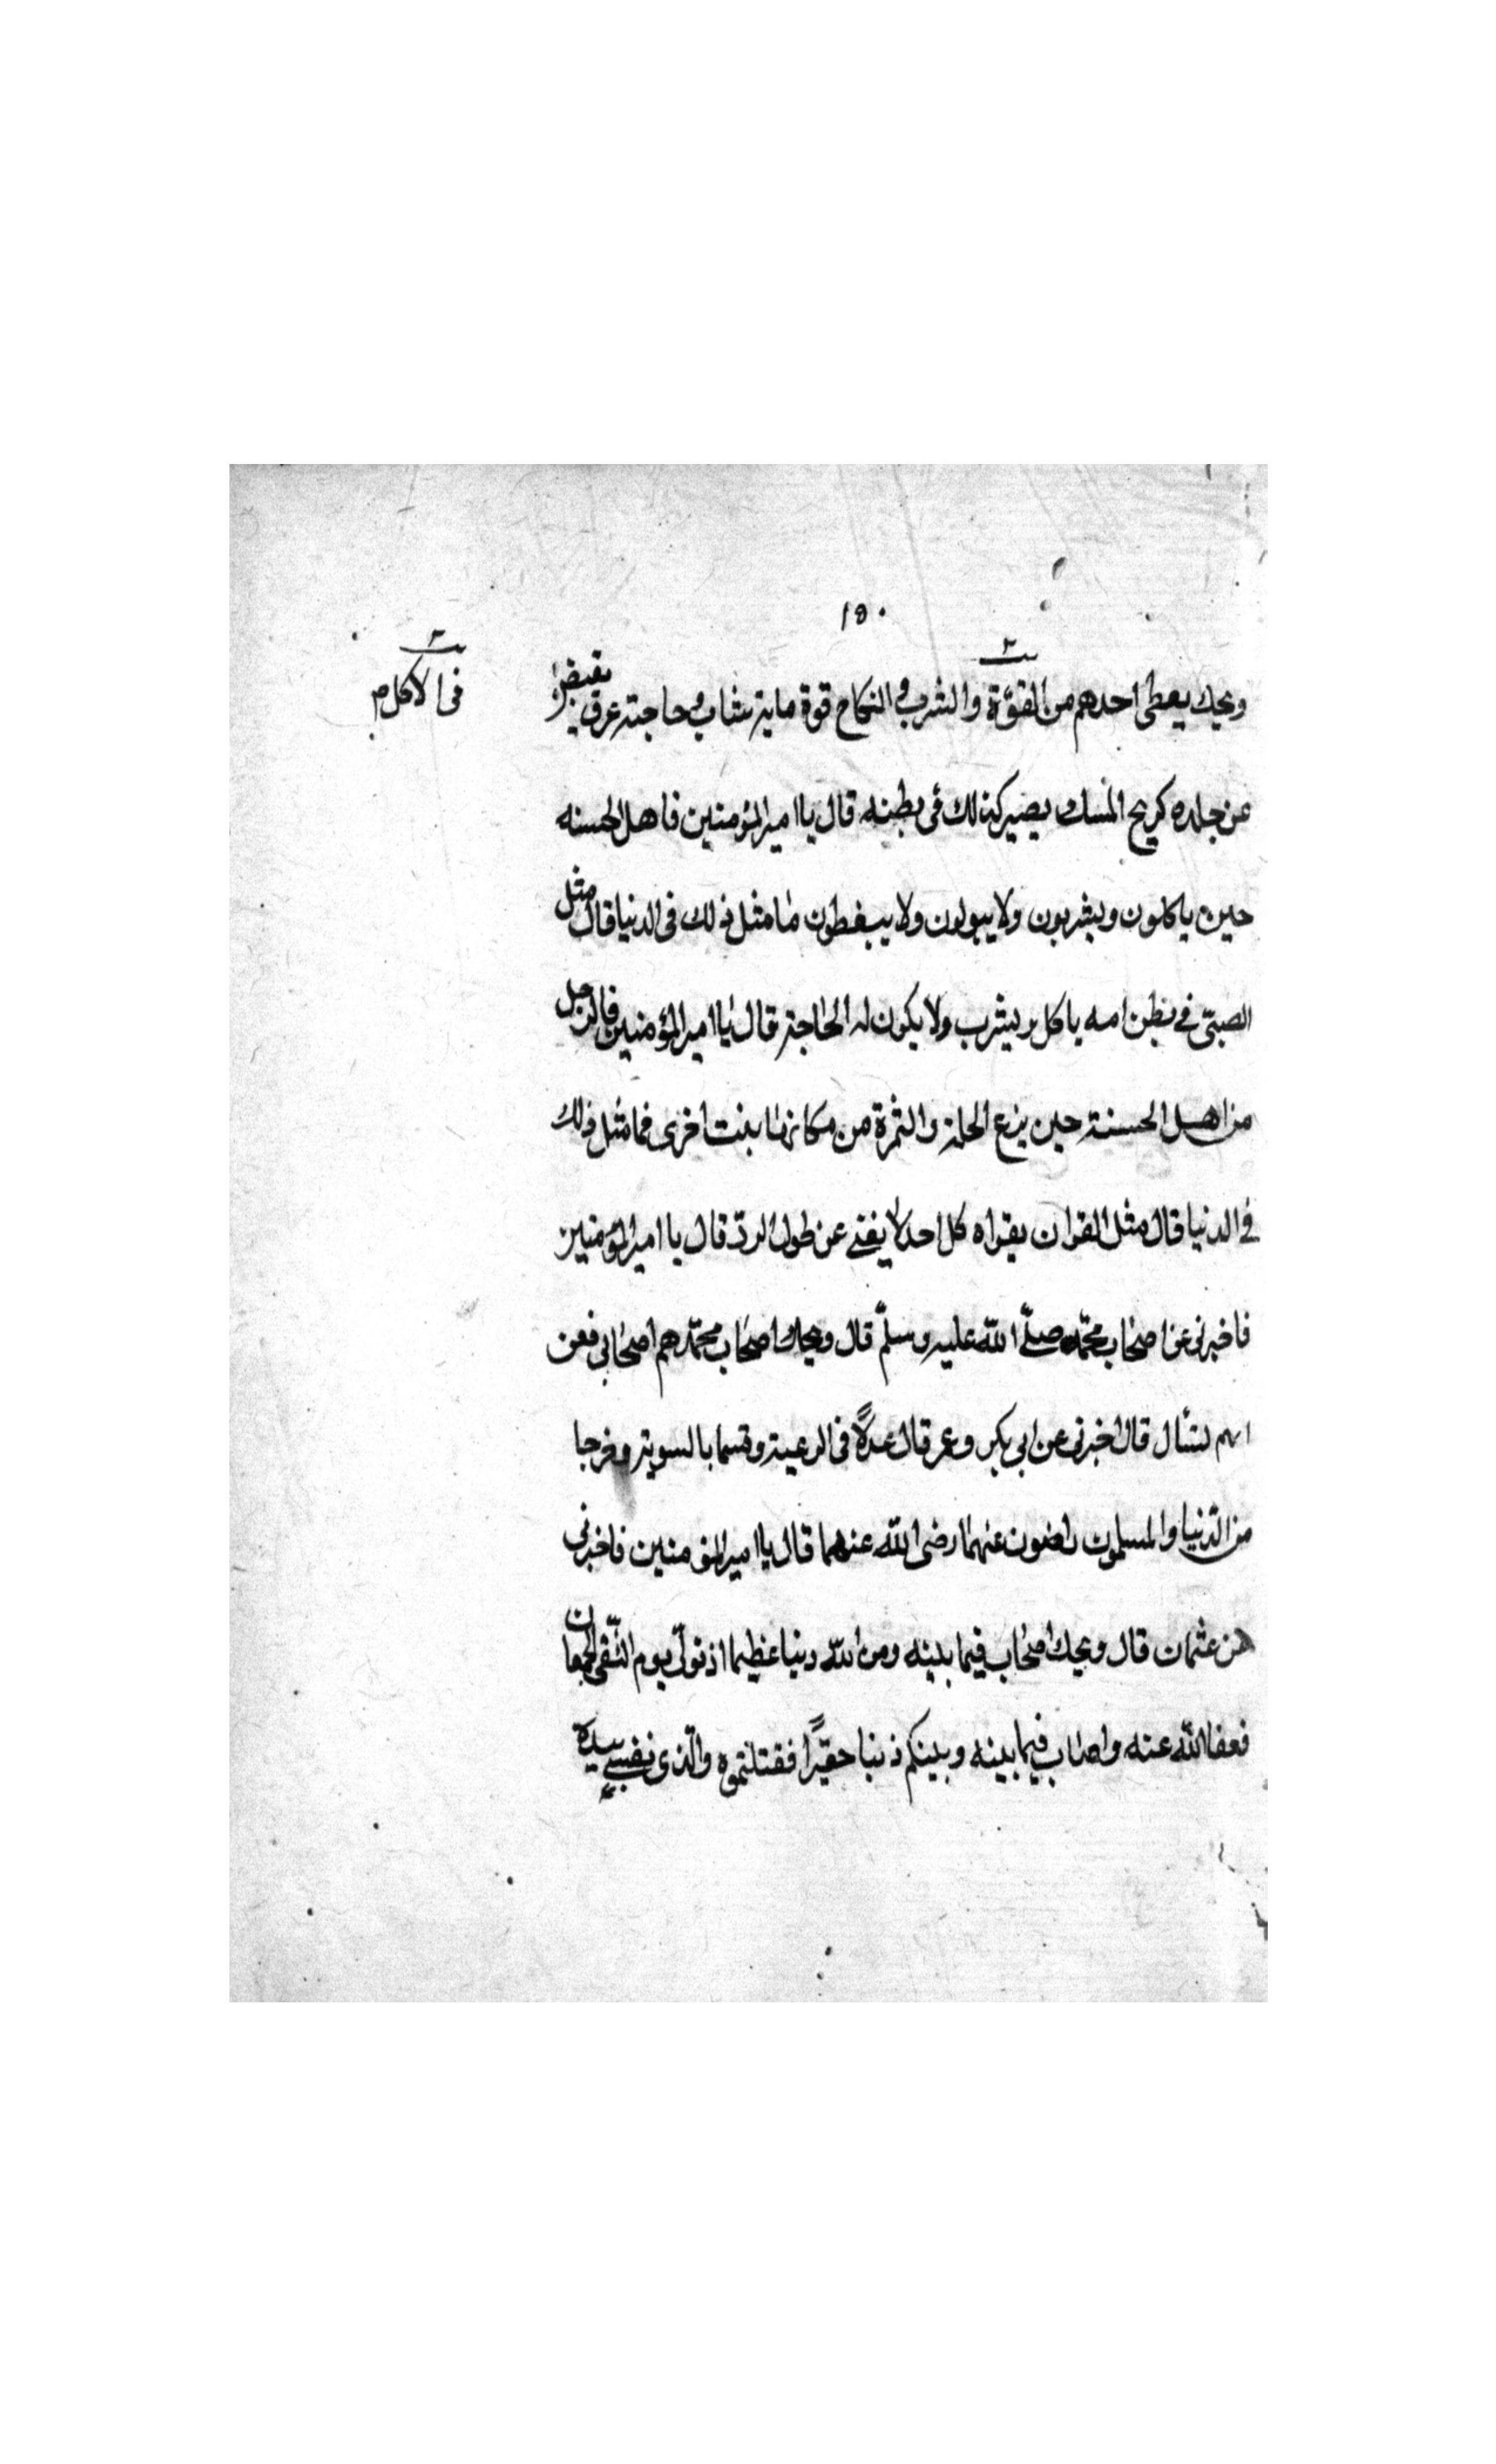 ١٥٠
ويحك يعطى احدهم من القوّة والشرب والنكاح قوة ماية شاب وحاجته عرق يفيض
فى الاكل م
عن جلده كريح المسك يصير كذلك فى بطنه قال يا امير المؤمنين فاهل الجسنه
حين ياكلون ويشربون ولا يبولون ولا يتغوطون ما مثل ذلك فى الدنيا قال مثل
الصبىّ فى بطن امه ياكل ويشرب ولا يكون له الحاجة قال يا امير المؤمنين فالرجل
من اهل الجسنة حين ينزع الحلة والثمرة من مكانها بنت اخرى فما مثل ذلك
فى الدنيا قال مثل القران يقراه كل احد لا يفنى عن طول الردّ قال يا امير المؤمنين
فاخبرنى عن اصحاب محمّد صلّى الله عليه وسلّم قال ويحك اصحاب محمّد هم اصحابى فعن
ايهم تسأل قال اخبرنى عن ابى بكر وعمر قال عدلًا فى الرعية وقسما بالسوية وخرجا
من الدّنيا والمسلمون راضون عنهما رضى الله عنهما قال يا امير المؤمنين فاخبرنى
عن عثمان قال ويحك اصاب فيما بينه ومن اللّه دنيا عظيما اذ تولّى يوم التّقى الجمعان
فعفا اللّه عنه واصاب فيما بينه وبينكم ذنبا حقيرًا فقتلتموه والّذى نفسى بيده